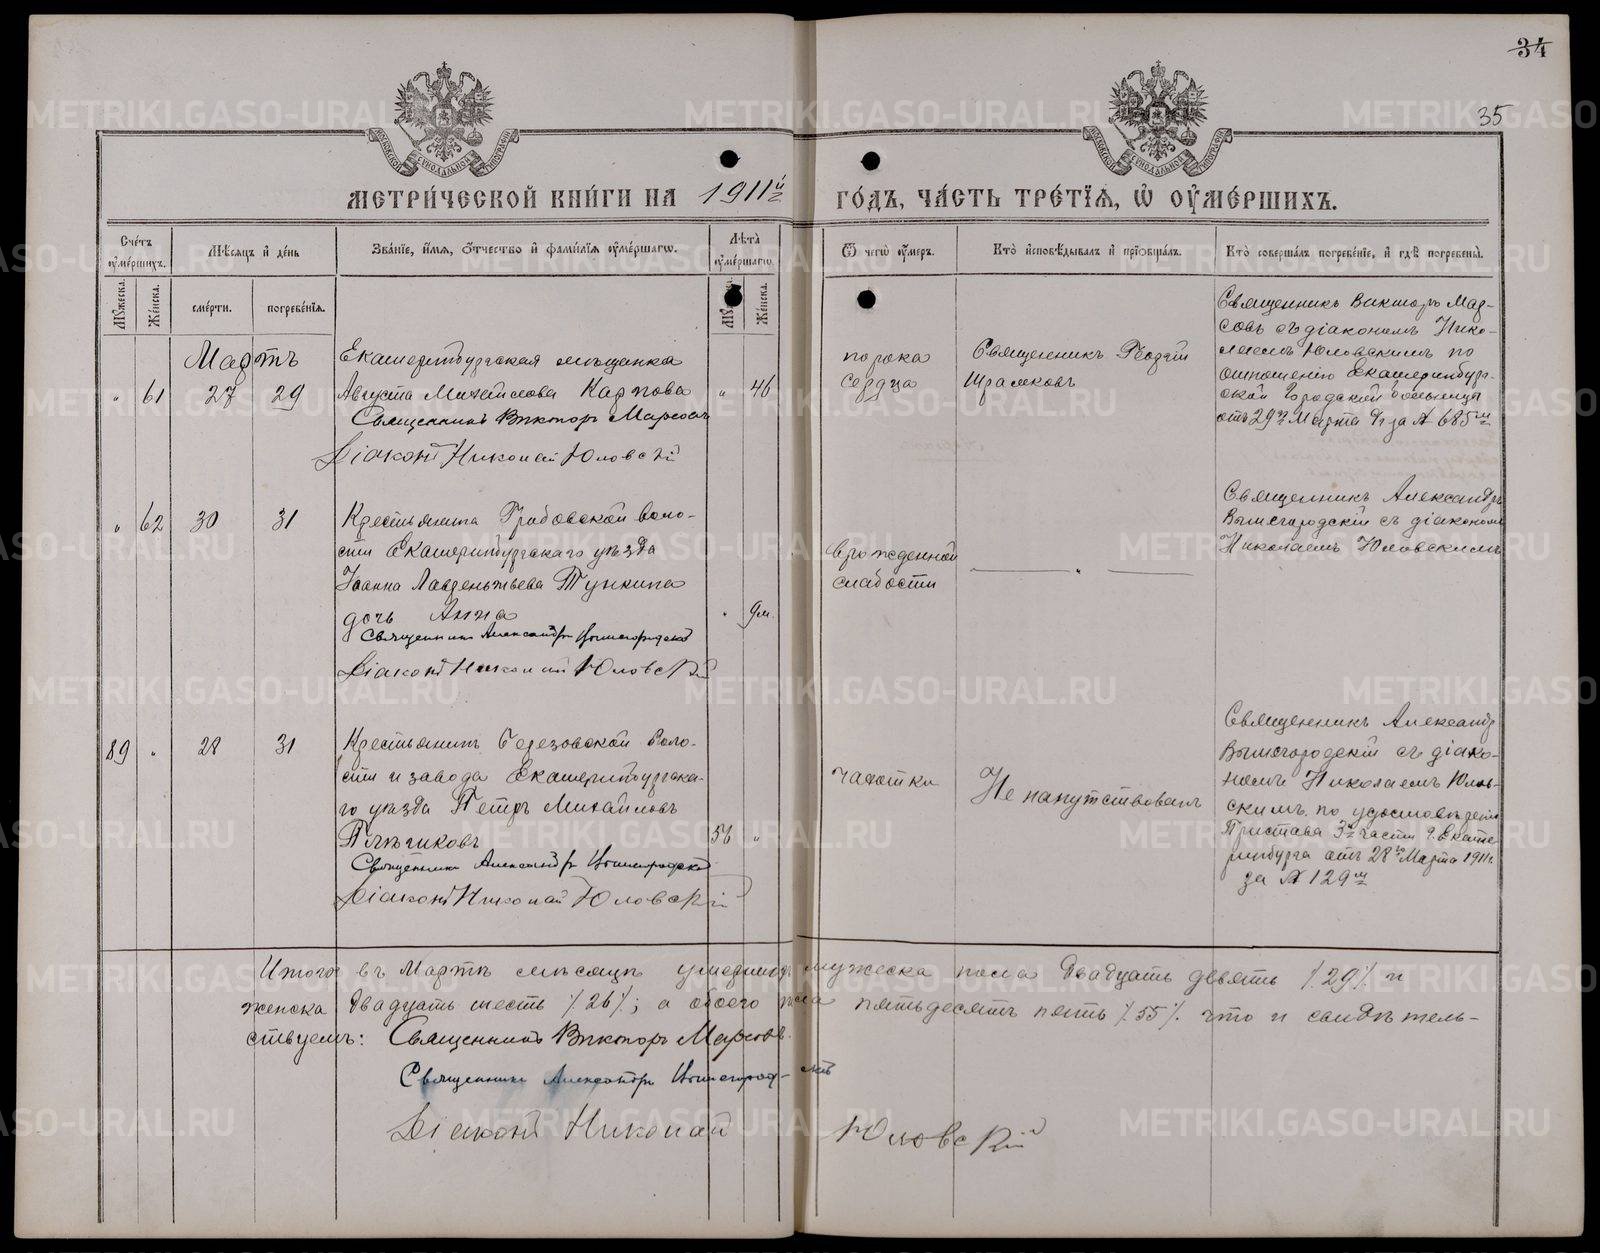 34
35
МЕТРИ́ЧЕСКОЙ КНИ́ГИ НА 1911й ГО́ДЪ, ЧА́СТЬ ТРЕ́ТІѦ, Ѡ ОУ҆МЕ́РШИХЪ.
Сче́тъ оу҆ме́ршихъ.
Мꙋ́жеска.
Же́нска.
Мѣ́сяцъ и҆ де́нь
сме́рти.
погребе́нїѧ.
Зва́нїе, и҆́мѧ, ѻ҆́тчество и҆ фами́лїѧ оу҆ме́ршагѡ.
Лѣ́та оу҆ме́ршагѡ.
Же́нска.
Ѿ чегѡ̀ оу҆́меръ.
Кто̀ и҆сповѣ́дывалъ и҆ прїѡбща́лъ.
Кто̀ соверша́лъ погребе́нїе, и҆ гдѣ̀ погребены̀.
Мартъ
" 61 27 29
Екатеринбургская мѣщанка
Августа Михайлова Карпова " 46
Священникъ Викторъ Марсовъ
Діаконъ Николай Юловскій
порока
сердца
Священникъ Георгій
Шрамковъ
Священникъ Викторъ Мар-
совъ съ діакономъ Нико-
лаемъ Юловскимъ по
отношенію Екатеринбург-
ской Городской больницы
отъ 29го Марта за № 685мъ
" 62 30 31
Крестьянина Грабовской воло-
сти Екатеринбургскаго уѣзда
Іоанна Лаврентьева Тункина
дочь Анна " 9 м.
Священникъ Александръ Вышегородскій
Діаконъ Николай Юловскій
врожденной
слабости
— " —
Священникъ Александръ
Вышегородскій съ діакономъ
Николаемъ Юловскимъ
89 " 28 31
Крестьянинъ Березовской воло-
сти и завода Екатеринбургска-
го уѣзда Петръ Михайловъ
56 "
Священникъ Александръ Вышегородскій
Діаконъ Николай Юловскій
чахотки
Не напутствованъ
Священникъ Александръ
Вышегородскій съ діако-
номъ Николаемъ Юлов-
скимъ по удостовѣренію
Пристава 3й части г. Екате-
ринбурга отъ 28го Марта 1911 г.
за № 129мъ
Итого въ Мартѣ мѣсяцѣ умершихъ мужеска пола двадцать девять /.29/. и
женска двадцать шесть /.26/.; а обоего пола пятьдесятъ пять /.55/. что и свидѣтель-
ствуемъ: Священникъ Викторъ Марсовъ.
Священникъ Александръ Вышегород-скій
Діаконъ Николай Юловскій